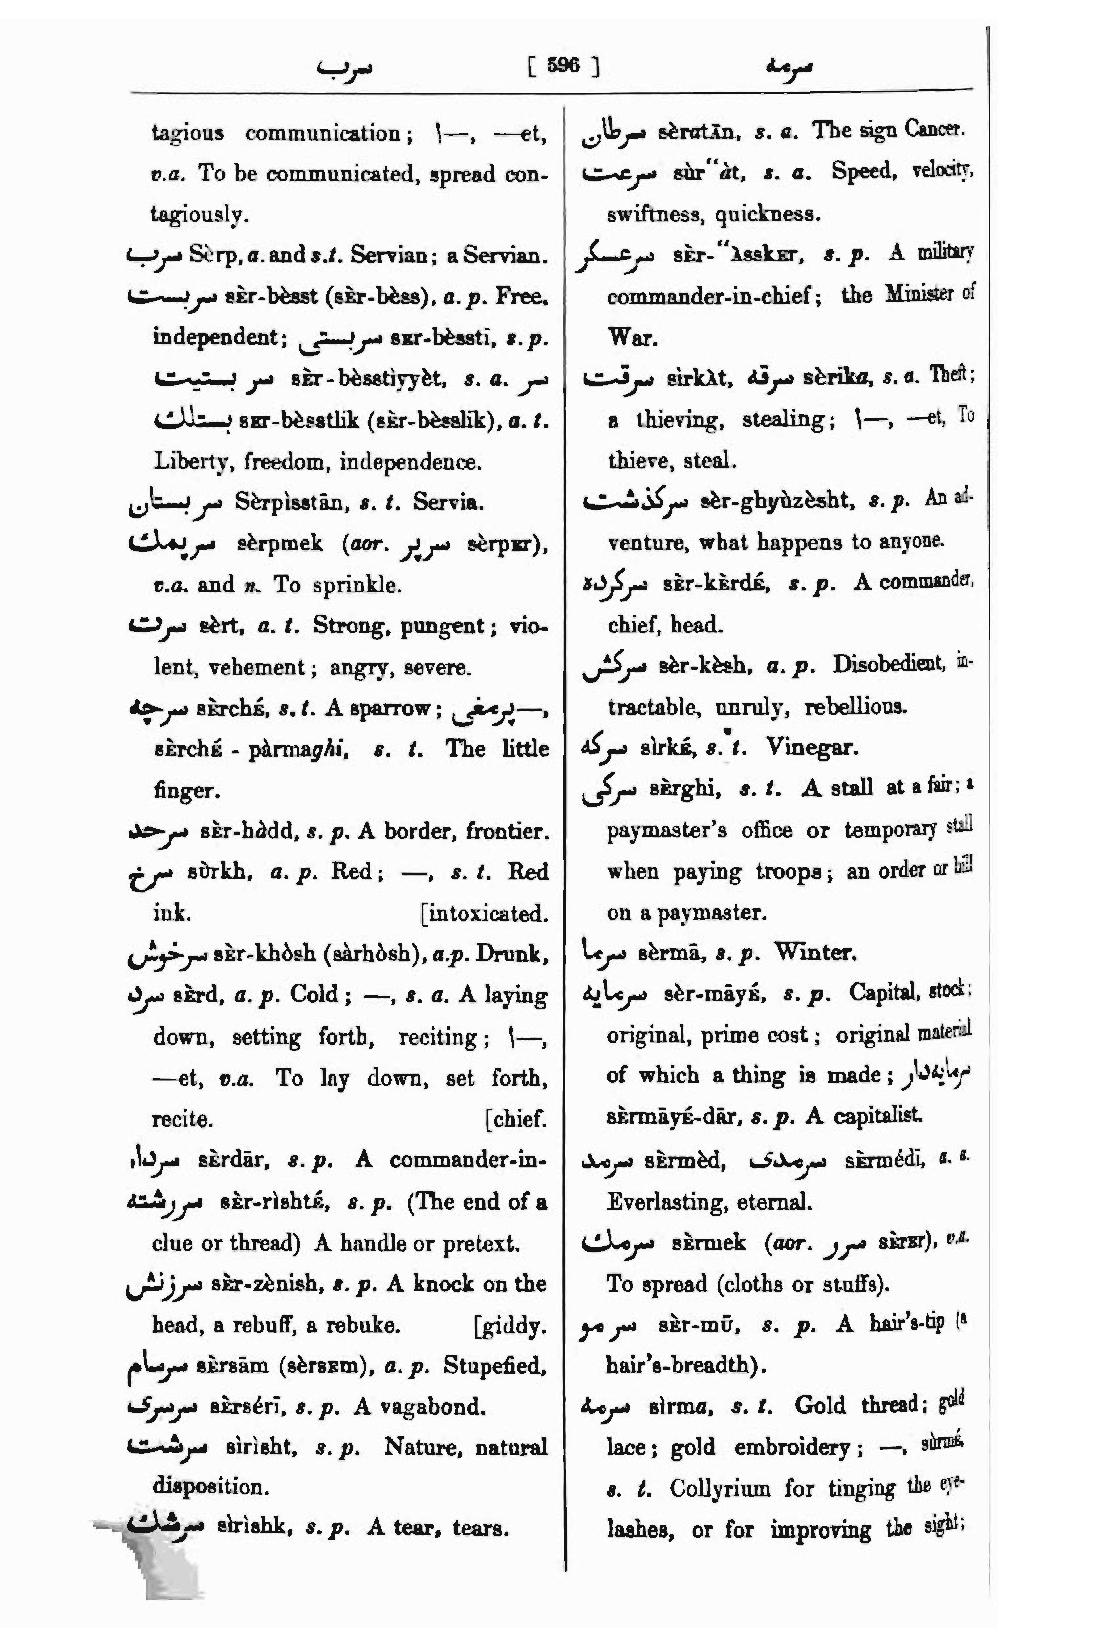 سرب [ 596 ] سرمه
tagious communication; \—, —et,
v.a. To be communicated, spread con-
tagiously.
سرب Sèrp, a. and s.t. Servian; a Servian.
سربست sÈr-bèsst (sÈr-bèss), a. p. Free,
independent; سربستی sEr-bèsstī, s. p.
سر بستیت sÈr-bèsstìyyèt, s. a. سر
بستلك sEr-bèsstlik (sÈr-bèsslìk), a. t.
Liberty, freedom, independence.
سر بستان Sèrpìsstān, s. t. Servia.
سرپمك sèrpmek (aor. سرپر sèrpEr),
v.a. and n. To sprinkle.
سرت sèrt, a. t. Strong, pungent; vio-
lent, vehement; angry, severe.
سرچه sÈrchÉ, s. t. A sparrow; پرمغی—,
sÈrchÉ-pàrmaghi, s. t. The little
finger.
سرحد sÈr-hàdd, s. p. A border, frontier.
سرخ sùrkh, a. p. Red; —, s. t. Red
ink. [intoxicated.
سرخوش sÈr-khòsh (sàrhòsh), a.p. Drunk,
سرد sÈrd, a. p. Cold; —, s. a. A laying
down, setting forth, reciting; \—,
—et, v.a. To lay down, set forth,
recite. [chief.
سردار sÈrdār, s. p. A commander-in-
سررشته sÈr-rìshtÉ, s. p. (The end of a
clue or thread) A handle or pretext.
سرزنش sÈr-zènish, s. p. A knock on the
head, a rebuff, a rebuke. [giddy.
سرسام sÈrsām (sèrsEm), a. p. Stupefied,
سرسری sÈrsérī, s. p. A vagabond.
سرشت sìrìsht, s. p. Nature, natural
disposition.
سرشك sìrìshk, s. p. A tear, tears.
سرطان sèratān, s. a. The sign Cancer.
سرعت sùr“àt, s. a. Speed, velocity,
swiftness, quickness.
سرعسكر sÈr-“àsskEr, s. p. A military
commander-in-chief; the Minister of
War.
سرقت sìrkàt, سرقه sèrika, s. a. Theft;
a thieving, stealing; \—, —et, To
thieve, steal.
سركذشت sèr-ghyùzèsht, s. p. An ad-
venture, what happens to anyone.
سركرده sÈr-kÈrdÉ, s. p. A commander,
chief, head.
سركش sèr-kèsh, a. p. Disobedient, in-
tractable, unruly, rebellious.
سركه sìrkÉ, s. t. Vinegar.
سركی sÈrghi, s. t. A stall at a fair; a
paymaster's office or temporary stall
when paying troops; an order or bill
on a paymaster.
سرما sèrmā, s. p. Winter.
سرمایه sèr-māyÉ, s. p. Capital, stock;
original, prime cost; original material
of which a thing is made; سرمایه‌دار
sÈrmāyÉ-dār, s. p. A capitalist.
سرمد sÈrmèd, سرمدی sÈrmédī, a. s.
Everlasting, eternal.
سرمك sÈrmek (aor. سرر sÈrEr), v.a.
To spread (cloths or stuffs).
سر مو sÈr-mū, s. p. A hair's-tip (a
hair's-breadth).
سرمه sìrma, s. t. Gold thread; gold
lace; gold embroidery; —, sùrmÉ,
s. t. Collyrium for tinging the eye-
lashes, or for improving the sight;